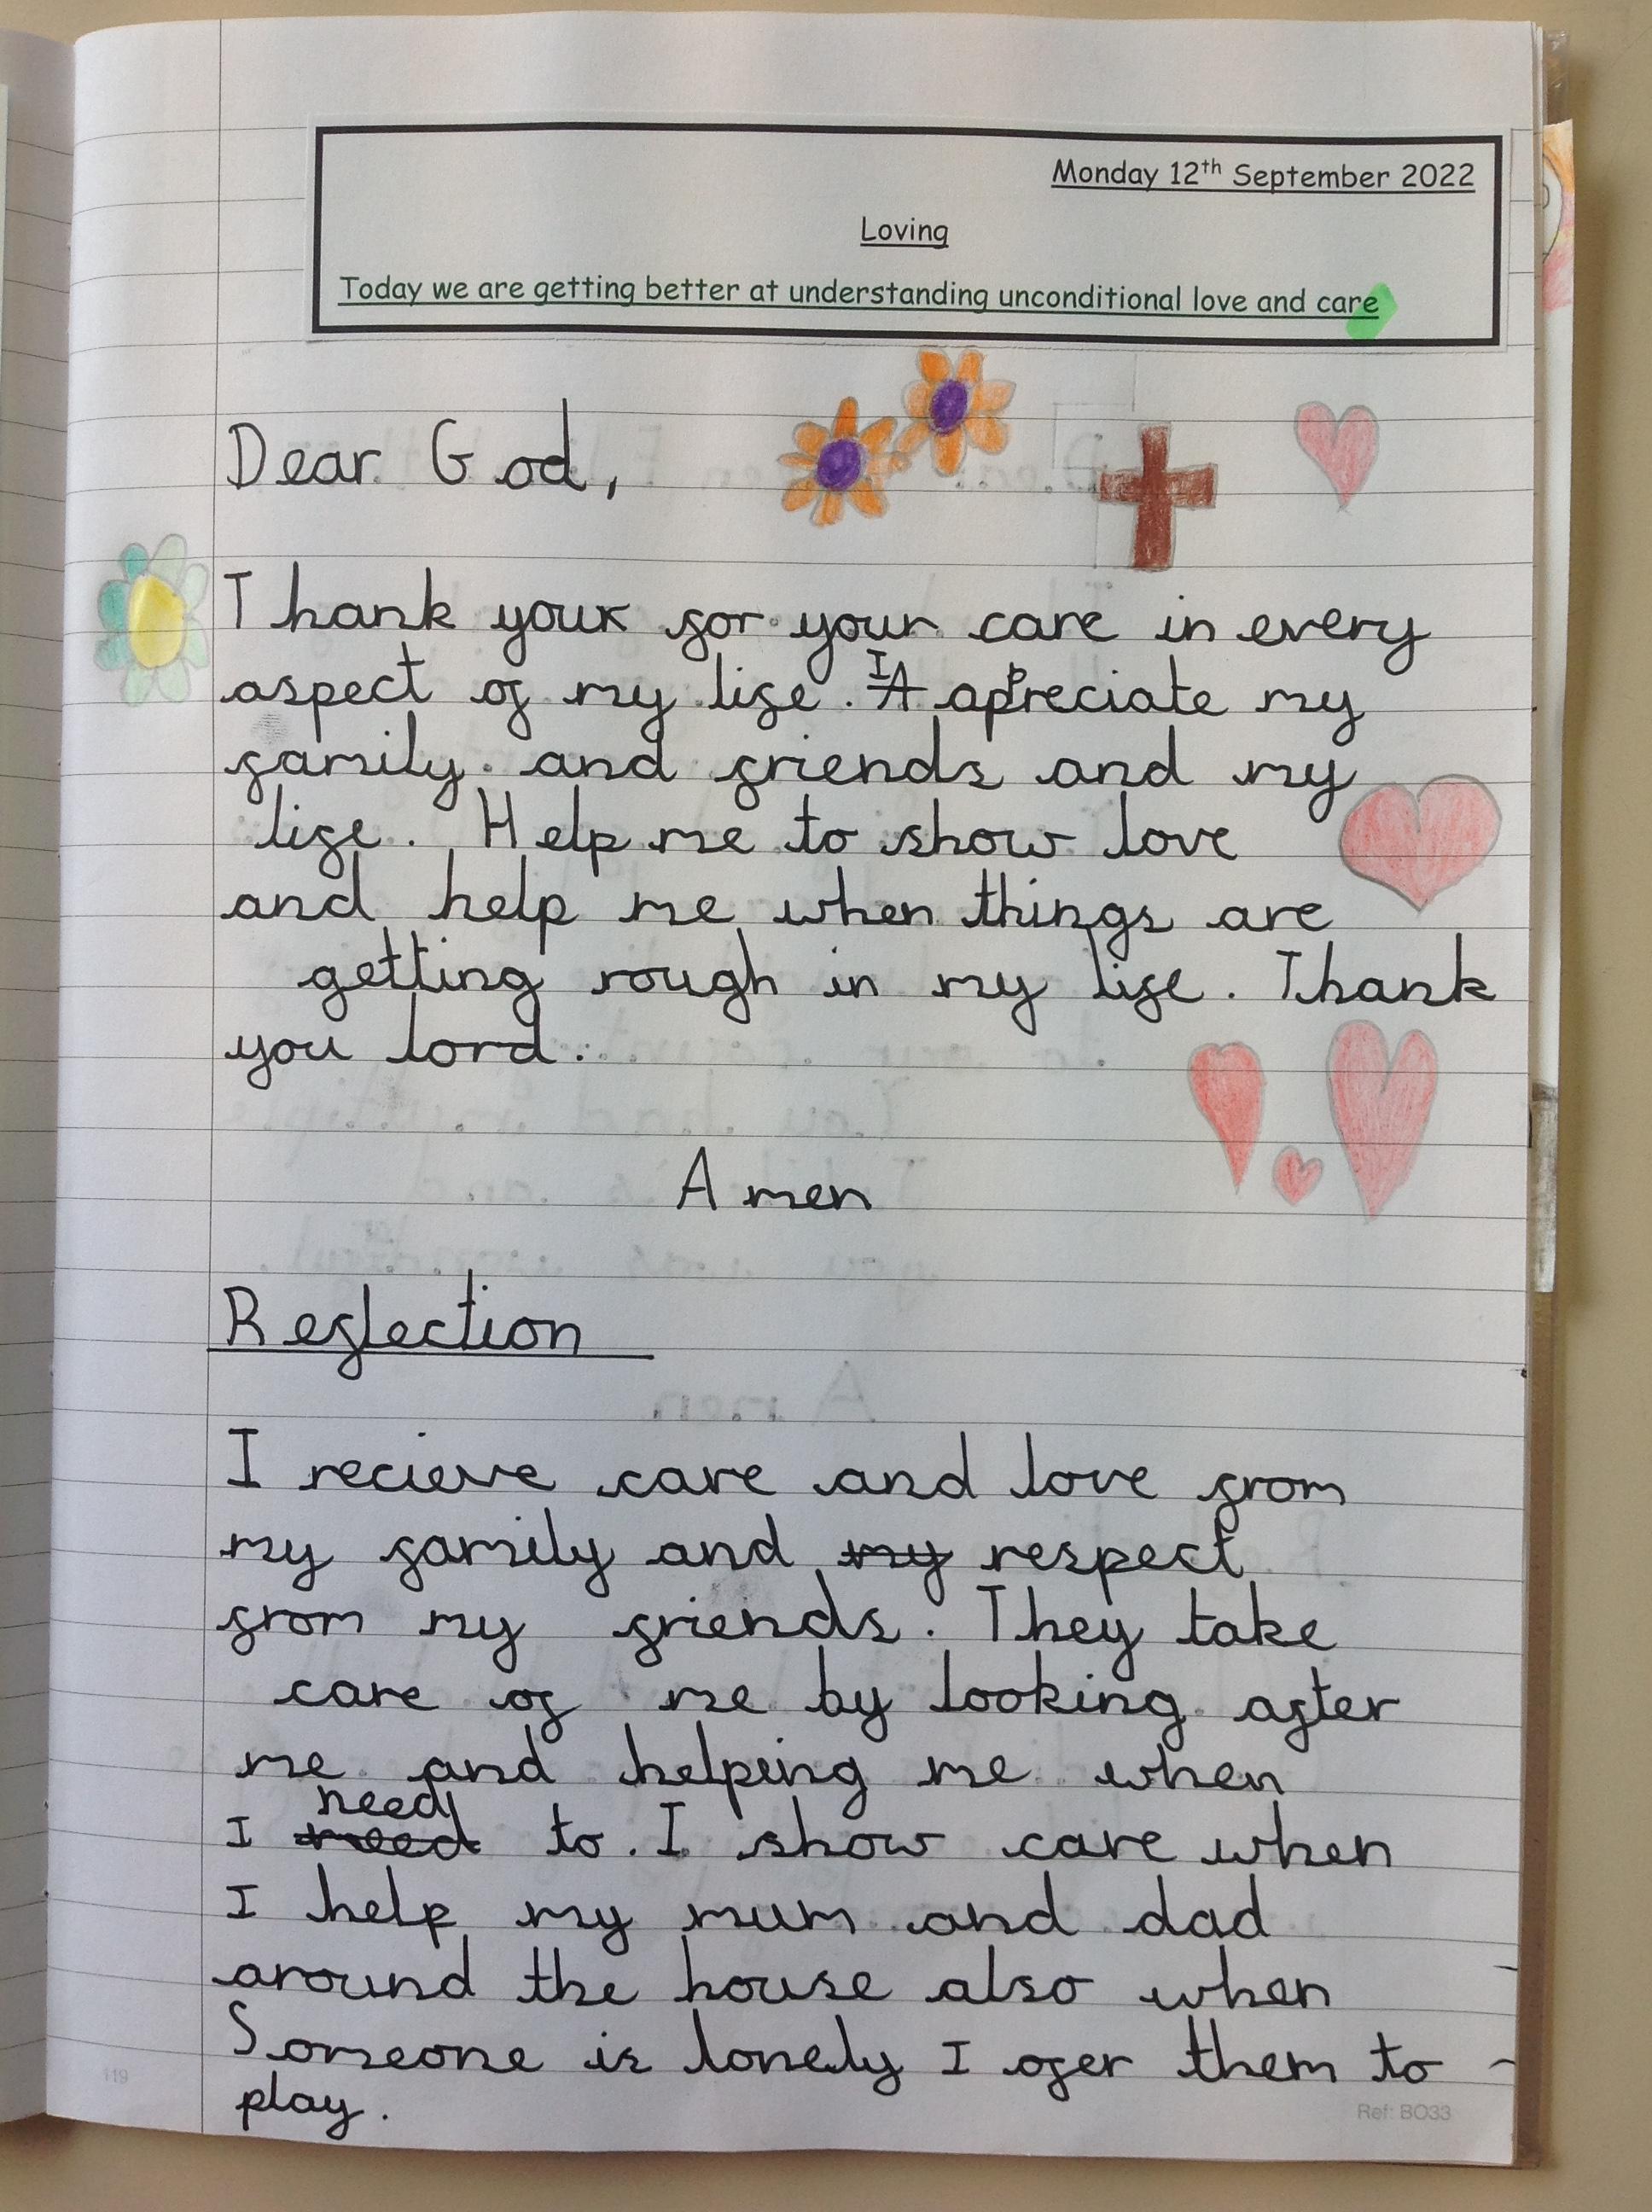 Monday 12th September 2022
Loving
Today we are getting better at understanding unconditional love and care
Dear God,
Thank you for your care in every
aspect of my life. I appreciate my
family and friends and my
life. Help me to show love
and help me when things are
getting rough in my life. Thank
you lord.
Amen
Reflection
I recieve care and love from
my family and my respect
from my friends. They take
care of me by looking after
me and helping me when
need
I need to. I show care when
I help my mum and dad
around the house also when
Someone is lonely I ofer them to
play.
119
Ref: BO33